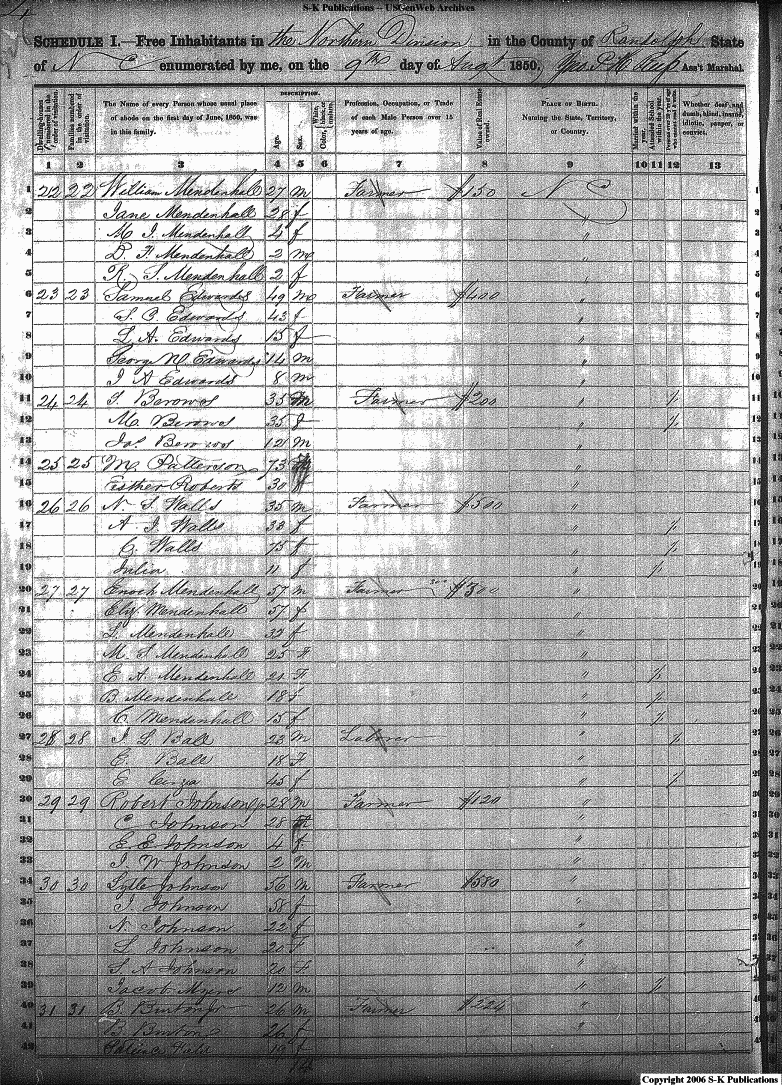 S-K Publications -- USGenWeb Archives
SCHEDULE I.—Free Inhabitants in the Northern Division in the County of Randolph State
of N C enumerated by me, on the 9th day of Augt 1850. Ass't Marshal.
Dwelling-houses numbered in the order of visitation.
Families numbered in the order of visitation.
The Name of every Person whose usual place of abode on the first day of June, 1850, was in this family.
DESCRIPTION.
Age.
Sex.
Color, White, black, or mulatto.
Profession, Occupation, or Trade of each Male Person over 15 years of age.
Value of Real Estate owned.
PLACE OF BIRTH.
Naming the State, Territory, or Country.
Married within the year.
Attended School within the year.
Whether deaf and dumb, blind, insane, idiotic, pauper, or convict.
1 2 3 4 5 6 7 8 9 10 11 12 13
1 22 22 William Mendenhall 27 m Farmer $150 N C
2 Jane Mendenhall 28 f "
3 M I Mendenhall 4 f "
4 D. F. Mendenhall 2 m "
5 R. S. Mendenhall 2 f "
6 23 23 Samuel Edwards 49 m Farmer $400 "
7 S. C. Edwards 43 f "
8 L. A. Edwards 15 f "
9 George W. Edwards 14 m "
10 J A Edwards 8 m "
11 24 24 35 m Farmer $200 " /
12 M. 35 f " /
13 Jas 12 m "
14 25 25 M Patterson 73 "
15 Esther Roberts 30 f "
16 26 26 N. S. Walls 35 m Farmer $500 "
17 A. J. Walls 38 f " /
18 C. Walls 75 f " /
19 Julia 11 f " /
20 27 27 Enoch Mendenhall 57 m Farmer $300 "
21 Eliz Mendenhall 57 f "
22 L. Mendenhall 32 f "
23 M. S. Mendenhall 25 F "
24 E. A. Mendenhall 21 F " /
25 B. Mendenhall 18 F " /
26 C. Mendenhall 15 f " /
27 28 28 J. L. Ball 23 m Laborer " /
28 E. Ball 18 F "
29 E 45 f " /
30 29 29 Robert Johnson 28 m Farmer $120 "
31 C. Johnson 28 "
32 E E Johnson 4 f "
33 J. W Johnson 2 m "
34 30 30 Lytle Johnson 56 m Farmer $580 "
35 J. Johnson 58 f "
36 N. Johnson 22 f "
37 L. Johnson 20 F "
38 S. A Johnson 20 F "
39 Jacob Myers 12 m " /
40 31 31 B. 26 m Farmer $224 "
41 B. 26 f "
42 19 f "
14
Copyright 2006 S-K Publications